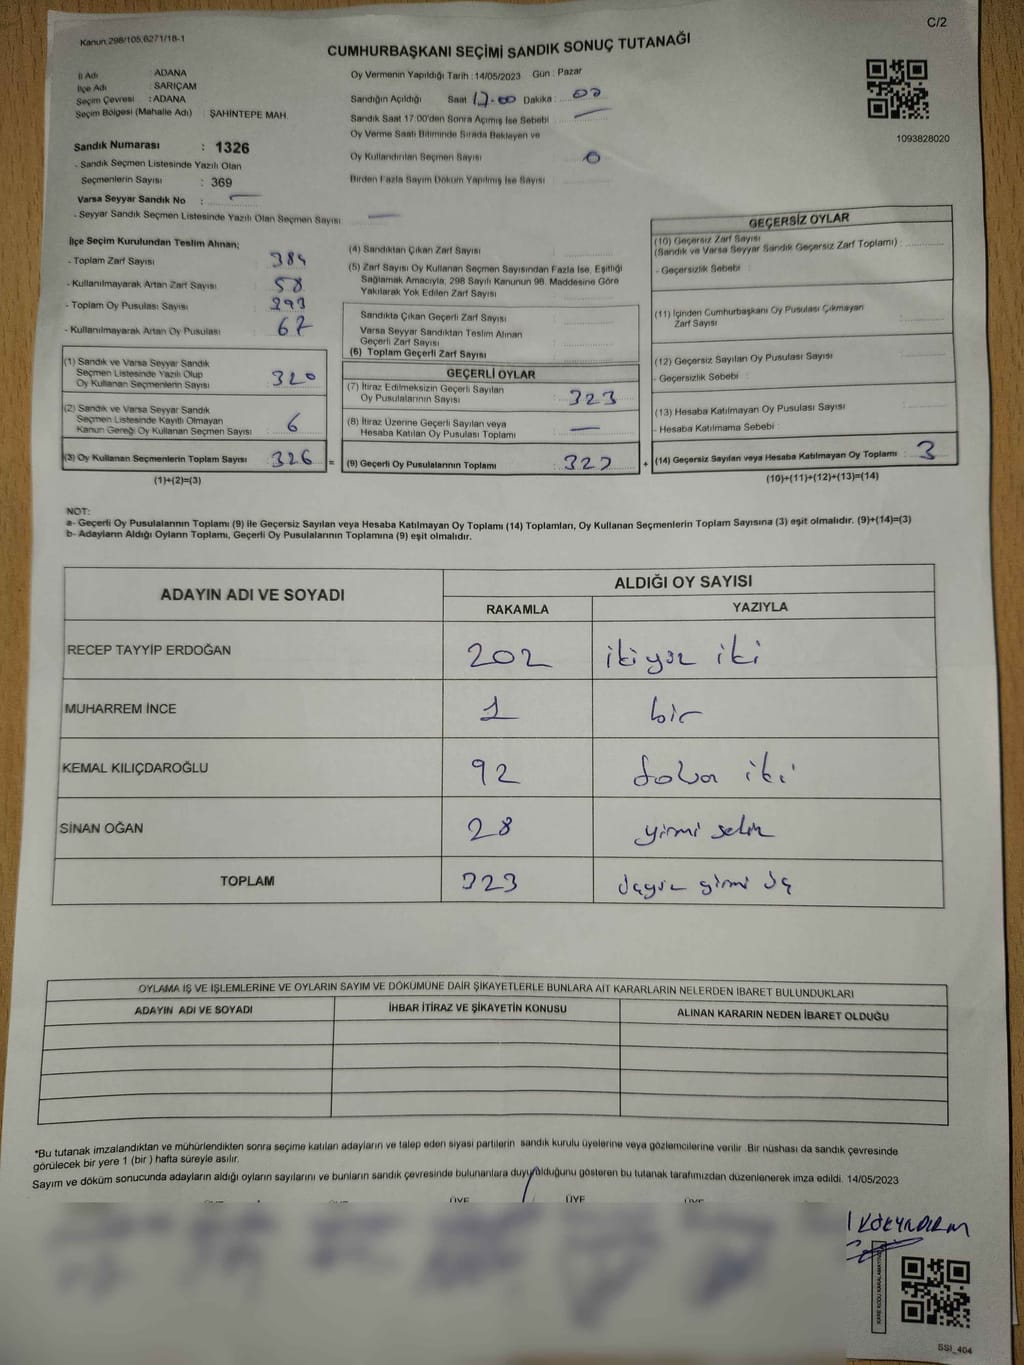 C/2
Kanun.298/105,6271/18-1
CUMHURBAŞKANI SEÇİMİ SANDIK SONUÇ TUTANAĞI
İl Adı : ADANA
İlçe Adı : SARIÇAM
Seçim Çevresi : ADANA
Seçim Bölgesi (Mahalle Adı) : ŞAHİNTEPE MAH.
Sandık Numarası : 1326
- Sandık Seçmen Listesinde Yazılı Olan
Seçmenlerin Sayısı : 369
Varsa Seyyar Sandık No : —
- Seyyar Sandık Seçmen Listesinde Yazılı Olan Seçmen Sayısı —
Oy Vermenin Yapıldığı Tarih : 14/05/2023 Gün : Pazar
Sandığın Açıldığı Saat 17.00 Dakika : 00
Sandık Saat 17:00'den Sonra Açımış İse Sebebi —
Oy Verme Saati Bitiminde Sırada Bekleyen ve
Oy Kullandırılan Seçmen Sayısı 0
Birden Fazla Sayım Döküm Yapılmış İse Sayısı
1093828020
İlçe Seçim Kurulundan Teslim Alınan;
- Toplam Zarf Sayısı : 384
- Kullanılmayarak Artan Zarf Sayısı : 58
- Toplam Oy Pusulası Sayısı : 393
- Kullanılmayarak Artan Oy Pusulası : 67
(1) Sandık ve Varsa Seyyar Sandık
Seçmen Listesinde Yazılı Olup
Oy Kullanan Seçmenlerin Sayısı : 320
(2) Sandık ve Varsa Seyyar Sandık
Seçmen Listesinde Kayıtlı Olmayan
Kanun Gereği Oy Kullanan Seçmen Sayısı 6
(3) Oy Kullanan Seçmenlerin Toplam Sayısı : 326 =
(1)+(2)=(3)
(4) Sandıktan Çıkan Zarf Sayısı
(5) Zarf Sayısı Oy Kullanan Seçmen Sayısından Fazla İse, Eşitliği
Sağlamak Amacıyla, 298 Sayılı Kanunun 98. Maddesine Göre
Yakılarak Yok Edilen Zarf Sayısı
Sandıkta Çıkan Geçerli Zarf Sayısı
Varsa Seyyar Sandıktan Teslim Alınan
Geçerli Zarf Sayısı
(6) Toplam Geçerli Zarf Sayısı
GEÇERLİ OYLAR
(7) İtiraz Edilmeksizin Geçerli Sayılan
Oy Pusulalarının Sayısı : 323
(8) İtiraz Üzerine Geçerli Sayılan veya
Hesaba Katılan Oy Pusulası Toplamı : —
(9) Geçerli Oy Pusulalarının Toplamı : 323 +
GEÇERSİZ OYLAR
(10) Geçersiz Zarf Sayısı
(Sandık ve Varsa Seyyar Sandık Geçersiz Zarf Toplamı) :
- Geçersizlik Sebebi :
(11) İçinden Cumhurbaşkanı Oy Pusulası Çıkmayan
Zarf Sayısı
(12) Geçersiz Sayılan Oy Pusulası Sayısı
- Geçersizlik Sebebi :
(13) Hesaba Katılmayan Oy Pusulası Sayısı
- Hesaba Katılmama Sebebi :
(14) Geçersiz Sayılan veya Hesaba Katılmayan Oy Toplamı : 3
(10)+(11)+(12)+(13)=(14)
NOT:
a- Geçerli Oy Pusulalarının Toplamı (9) ile Geçersiz Sayılan veya Hesaba Katılmayan Oy Toplamı (14) Toplamları, Oy Kullanan Seçmenlerin Toplam Sayısına (3) eşit olmalıdır. (9)+(14)=(3)
b- Adayların Aldığı Oyların Toplamı, Geçerli Oy Pusulalarının Toplamına (9) eşit olmalıdır.
ADAYIN ADI VE SOYADI ALDIĞI OY SAYISI
RAKAMLA YAZIYLA
RECEP TAYYİP ERDOĞAN 202 ikiyüz iki
MUHARREM İNCE 1 bir
KEMAL KILIÇDAROĞLU 92 doksan iki
SİNAN OĞAN 28 yirmi sekiz
TOPLAM 323 üçyüz yirmi üç
OYLAMA İŞ VE İŞLEMLERİNE VE OYLARIN SAYIM VE DÖKÜMÜNE DAİR ŞİKAYETLERLE BUNLARA AİT KARARLARIN NELERDEN İBARET BULUNDUKLARI
ADAYIN ADI VE SOYADI İHBAR İTİRAZ VE ŞİKAYETİN KONUSU ALINAN KARARIN NEDEN İBARET OLDUĞU
*Bu tutanak imzalandıktan ve mühürlendikten sonra seçime katılan adayların ve talep eden siyasi partilerin sandık kurulu üyelerine veya gözlemcilerine verilir. Bir nüshası da sandık çevresinde
görülecek bir yere 1 (bir ) hafta süreyle asılır.
Sayım ve döküm sonucunda adayların aldığı oyların sayılarını ve bunların sandık çevresinde bulunanlara duyurulduğunu gösteren bu tutanak tarafımızdan düzenlenerek imza edildi. 14/05/2023
ÜYE ÜYE
SSİ_404